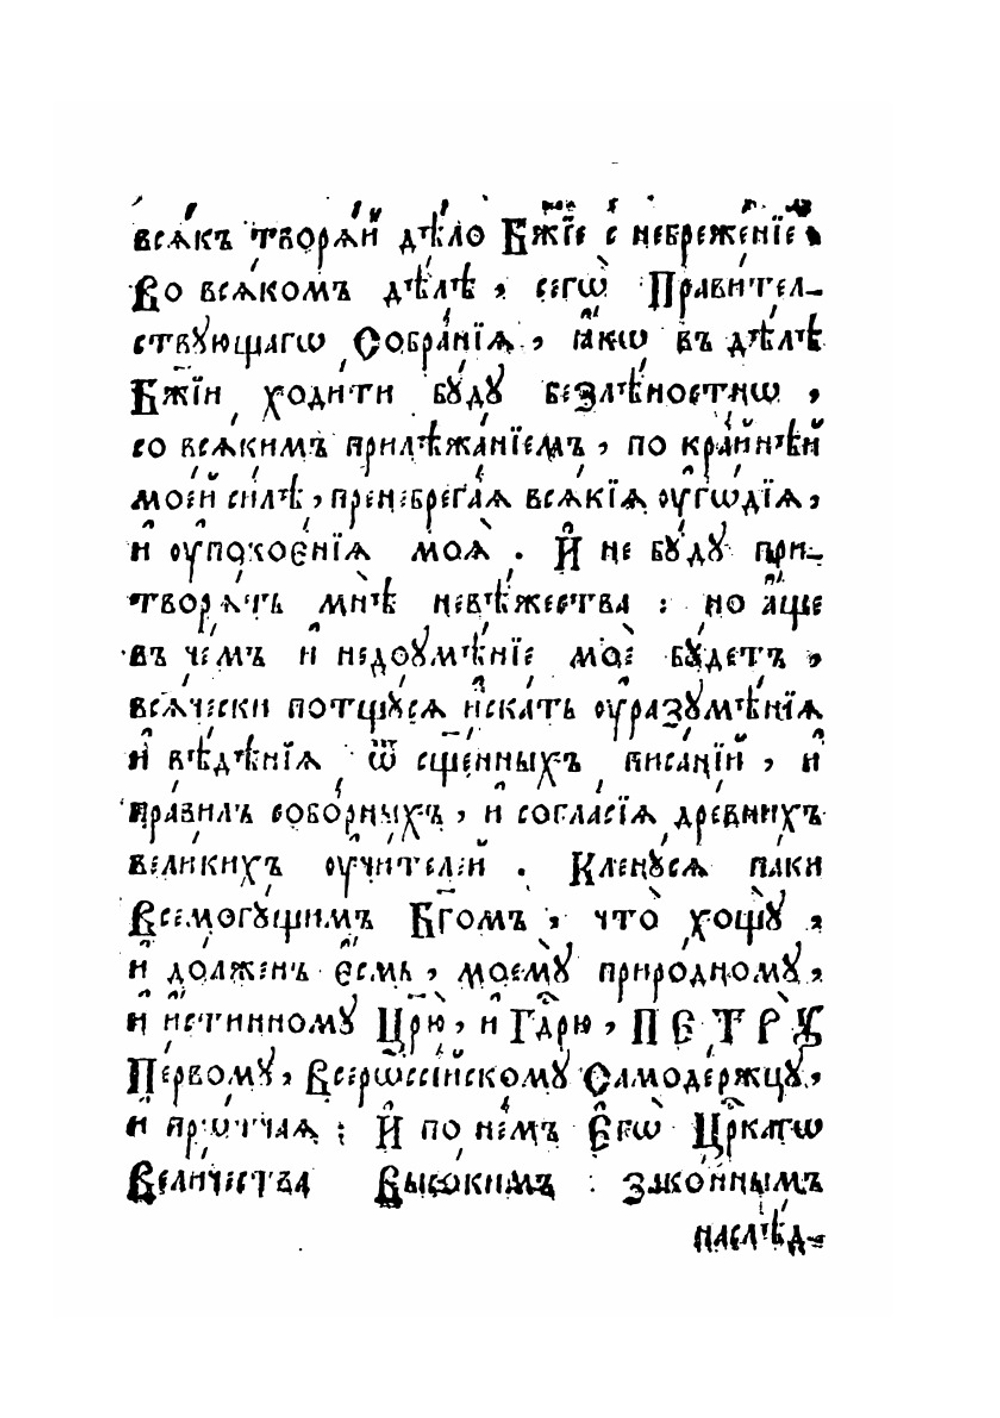 всѧ́къ творѧ́й дѣ́ло Бж҃їе с небреже́нїемъ
Во всѧ́комъ дѣ́лѣ, сегѡ̀ Прави́тел-
ствующагѡ Собра́нїѧ, ꙗ҆́кѡ въ дѣ́лѣ
Бж҃їи ходи́ти бꙋ́дꙋ безлѣ́ностнѡ,
со всѧ́кимъ прилѣжа́нїемъ, по кра́йнѣй
мое́й си́лѣ, пренебрега́ѧ всѧ́кїѧ ᲂу҆гѡ́дїѧ,
и҆ ᲂу҆покое́нїѧ моѧ̀. И҆ не бꙋ́дꙋ при-
творѧ́ть мнѣ̀ невѣ́жества : но а҆́ще
въ че́мъ и҆ недоꙋмѣ́нїе моѐ бꙋ́детъ,
всѧ́чески потщꙋ́сѧ и҆ска́ть ᲂу҆разꙋмѣ́нїѧ
и҆ вѣ́дѣнїѧ ѿ сщ҃е́нныхъ писа́нїй, и҆
пра́вилъ собо́рныхъ, и҆ согла́сїѧ дре́внихъ
вели́кихъ ᲂу҆чи́телей. Кленꙋ́сѧ па́ки
Всемогꙋ́щимъ Бг҃омъ, что̀ хощꙋ̀,
и҆ до́лженъ є҆́смь, моемꙋ̀ приро́дномꙋ,
и҆ и҆́стинномꙋ Цр҃ю̀, и҆ Гдⷭ҇рю, ПЕТРꙊ̀
Пе́рвомꙋ, Всерѡссі́йскомꙋ Самоде́ржцꙋ,
и҆ про́тчаѧ ; И҆ по не́мъ Є҆гѡ̀ Цр҃кагѡ
Вели́чества Высо́кимъ зако́ннымъ
наслѣ́д-